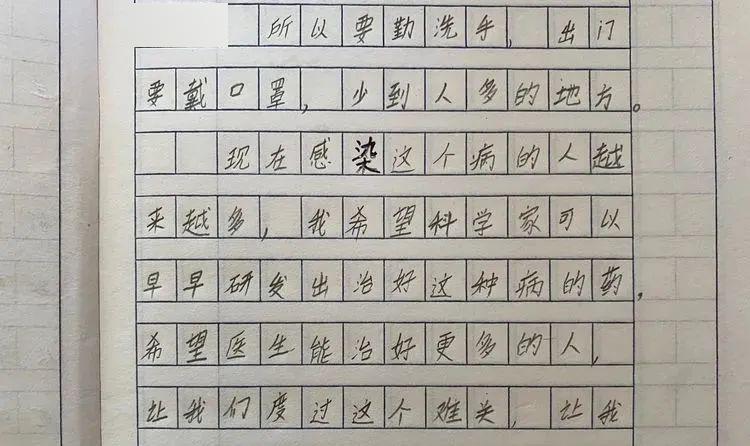 所以要勤洗手，出门
要戴口罩，少到人多的地方。
现在感染这个病的人越
来越多，我希望科学家可以
早早研发出治好这种病的药，
希望医生能治好更多的人，
让我们度过这个难关，让我